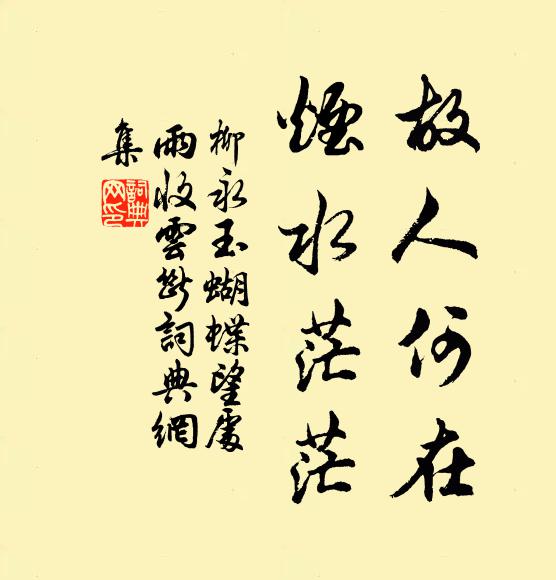 故人何在
煙水茫茫
柳永玉蝴蝶望處
雨收雲斷詞典網
集
詞典
网印